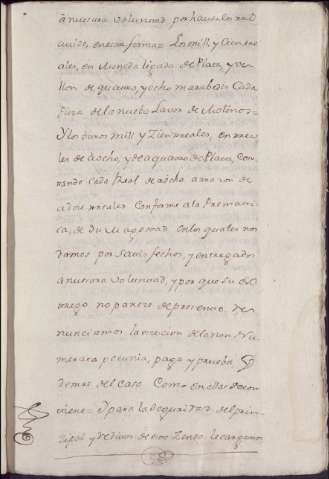 a nuestra voluntad por haverlo
en esta forma: Los mill y
ales, en Moneda ligada de Plata, y ve
llon de quatro, y ocho maravedis Cada
Pieza de lo nuebo Labor de Molinos
Y los otros mill y Zien reales, en rea
les de a ocho, y de a quatro de Plata, Con
tando Cada Real de a ocho a razon de
reales Conforme a la Premati
ca, de Su Magestad de los quales nos
damos por Satisfechos, y entregados
a nuestra voluntad, y por que su en
trego no parece de presente, Re
nunciamos la excepcion de la non Nu
merata pecunia, paga y prueba
demas del caso Como en ellas se con
viene Y para la Seguridad del prin
zipal y reditos de este Zenso le cargamos